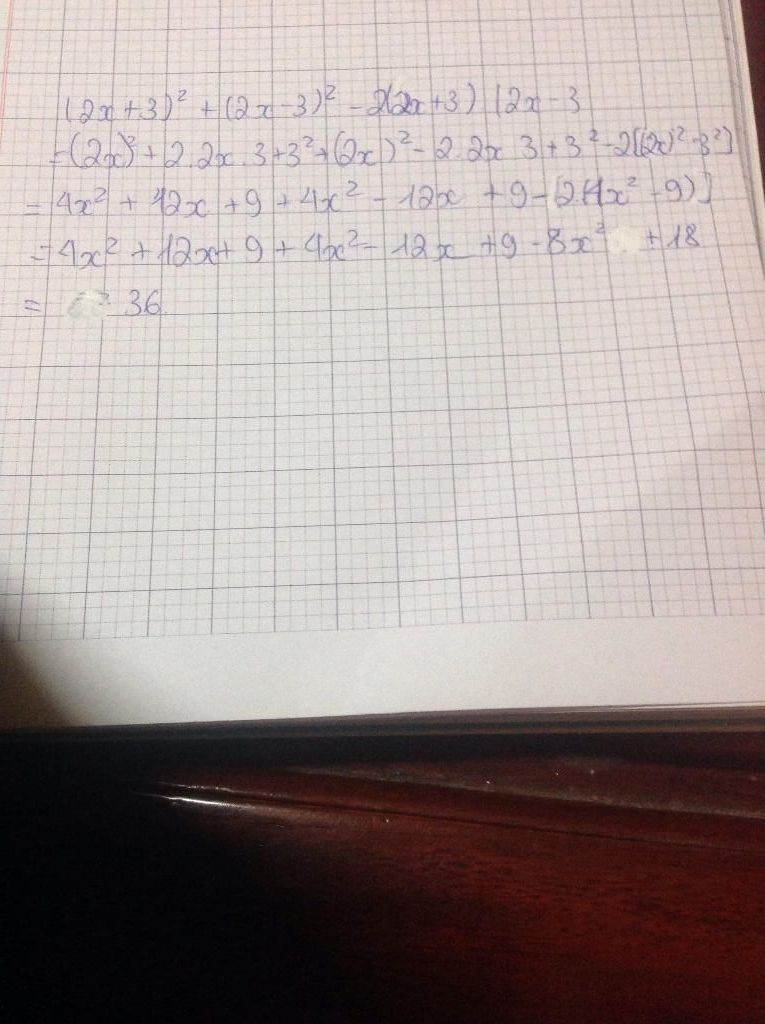 (2x+3)² + (2x-3)² - 2(2x+3) (2x-3
=(2x)² + 2.2x.3+3²+(2x)² - 2.2x 3 + 3² - 2[(2x)²-3²]
= 4x² + 12x + 9 + 4x² - 12x + 9 - [2.(4x² - 9)]
= 4x² + 12x + 9 + 4x² - 12x + 9 - 8x² + 18
= 36